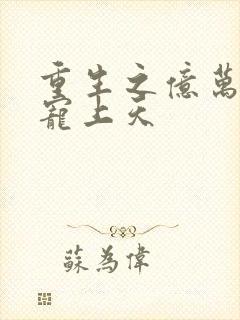 重生之億萬
寵上天
蘇為偉